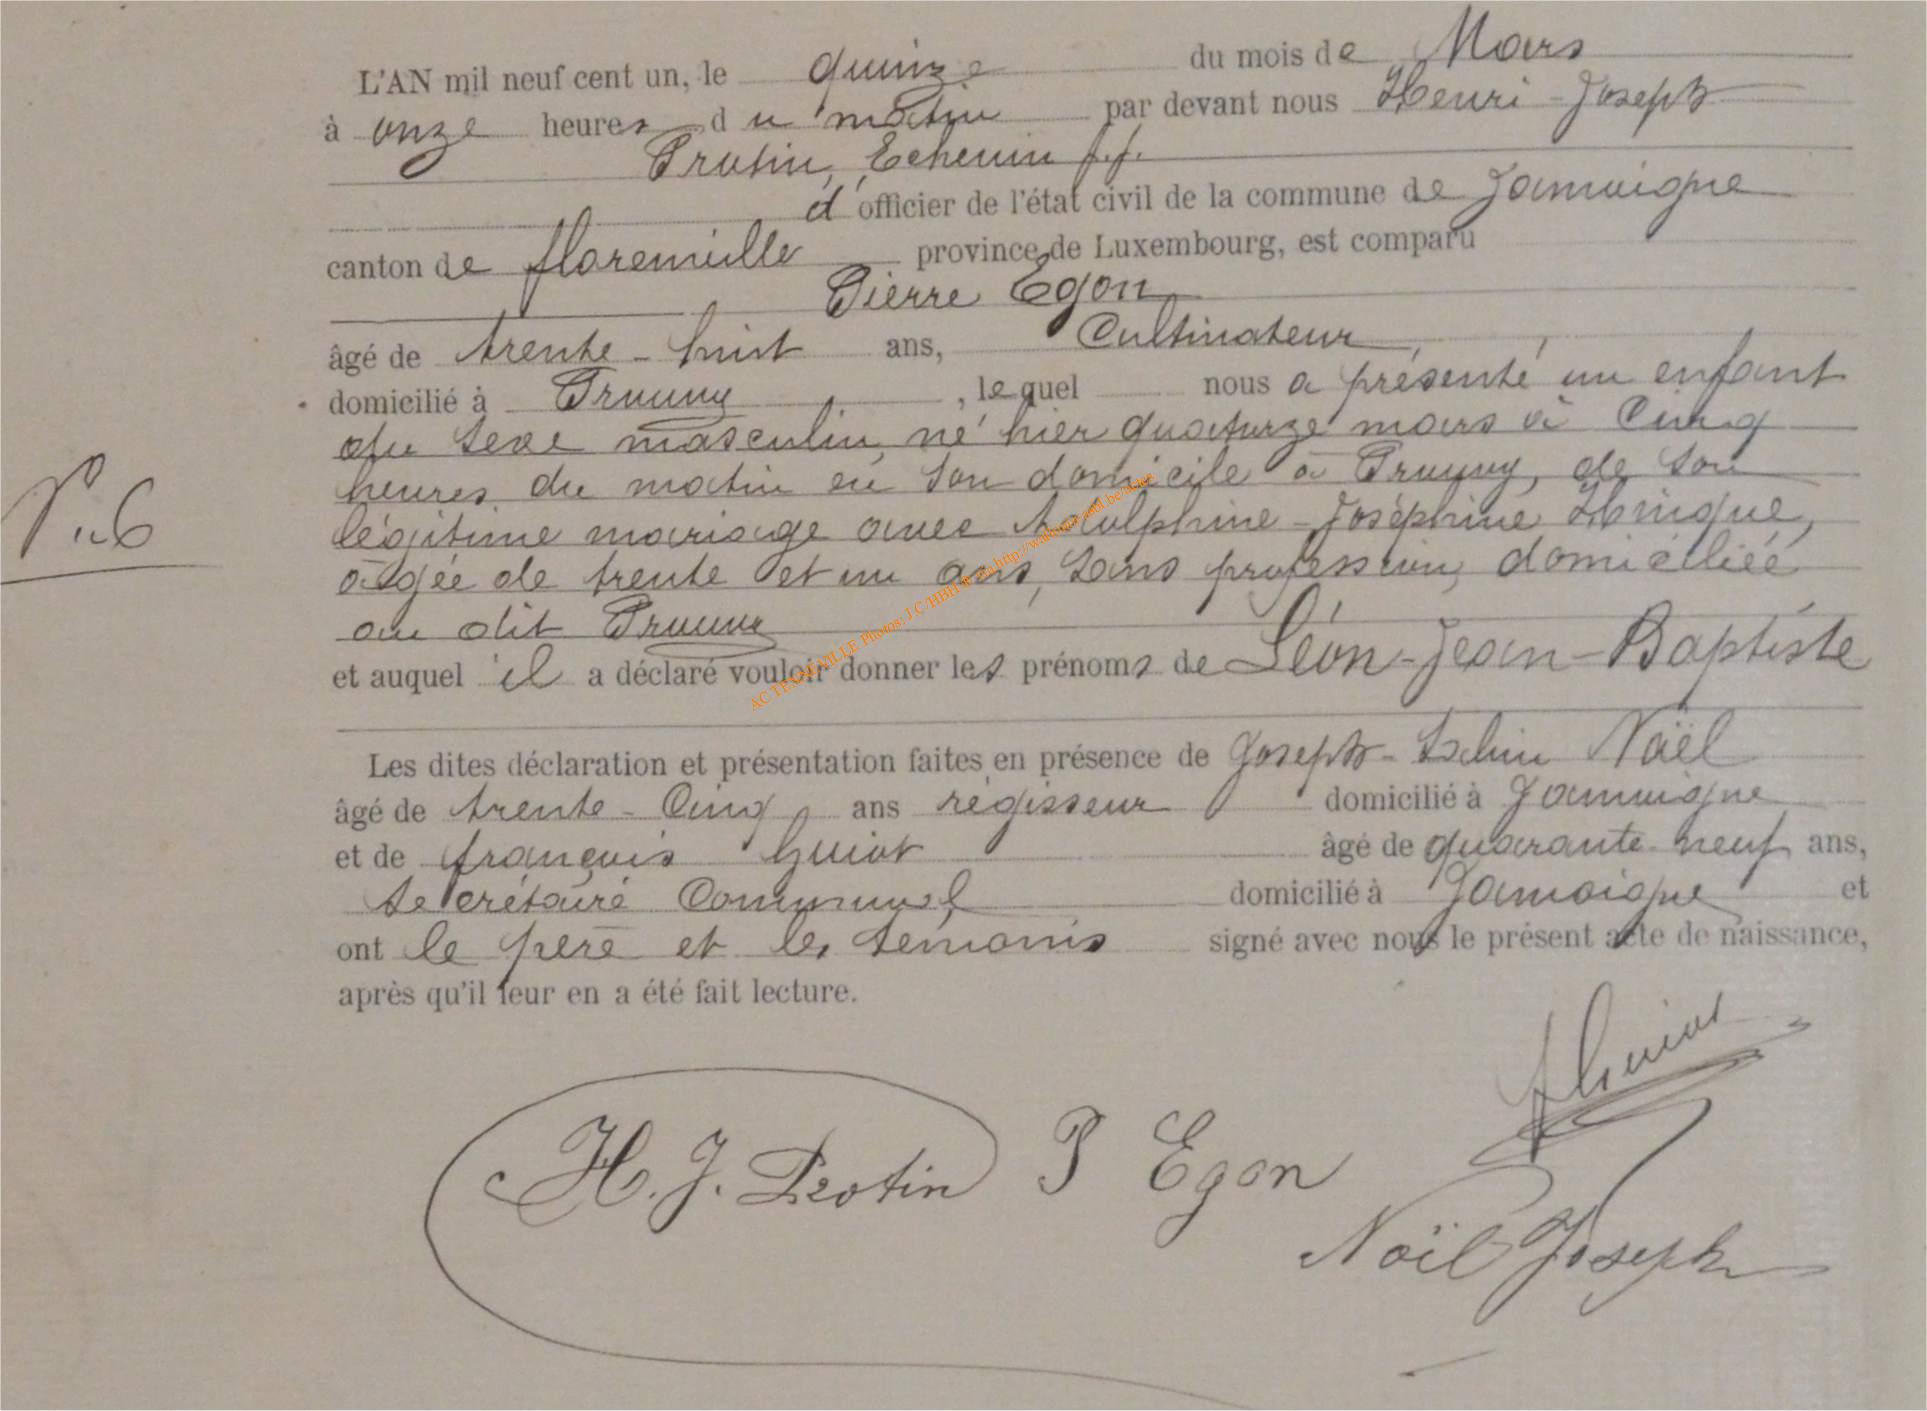 L'AN mil neuf cent un, le quinze du mois de Mars
à onze heures du matin par devant nous Henri-Joseph
Protin, Echevin f.f.
d'officier de l'état civil de la commune de Jamoigne
canton de florenville province de Luxembourg, est comparu
Pierre Egon
âgé de trente-huit ans, Cultivateur,
domicilié à Prouvy, lequel nous a présenté un enfant
du sexe masculin, né hier quatorze mars à Cinq
heures du matin en son domicile à Prouvy, de son
légitime mariage avec Adolphine-Joséphine,
âgée de trente et un ans, sans profession, domiciliée
au dit Prouvy
et auquel il a déclaré vouloir donner les prénoms de Léon-Jean-Baptiste
Les dites déclaration et présentation faites en présence de Joseph- Noël
âgé de trente-Cinq ans régisseur domicilié à Jamoigne
et de françois Guiot âgé de quarante-neuf ans,
secrétaire Communal domicilié à Jamoigne et
ont le père et les témoins signé avec nous le présent acte de naissance,
après qu'il leur en a été fait lecture.
N. 6
ACTE NAVILLE Photos: J.C/HBH
H. J. Protin
P Egon
f Guiot
Noël Joseph